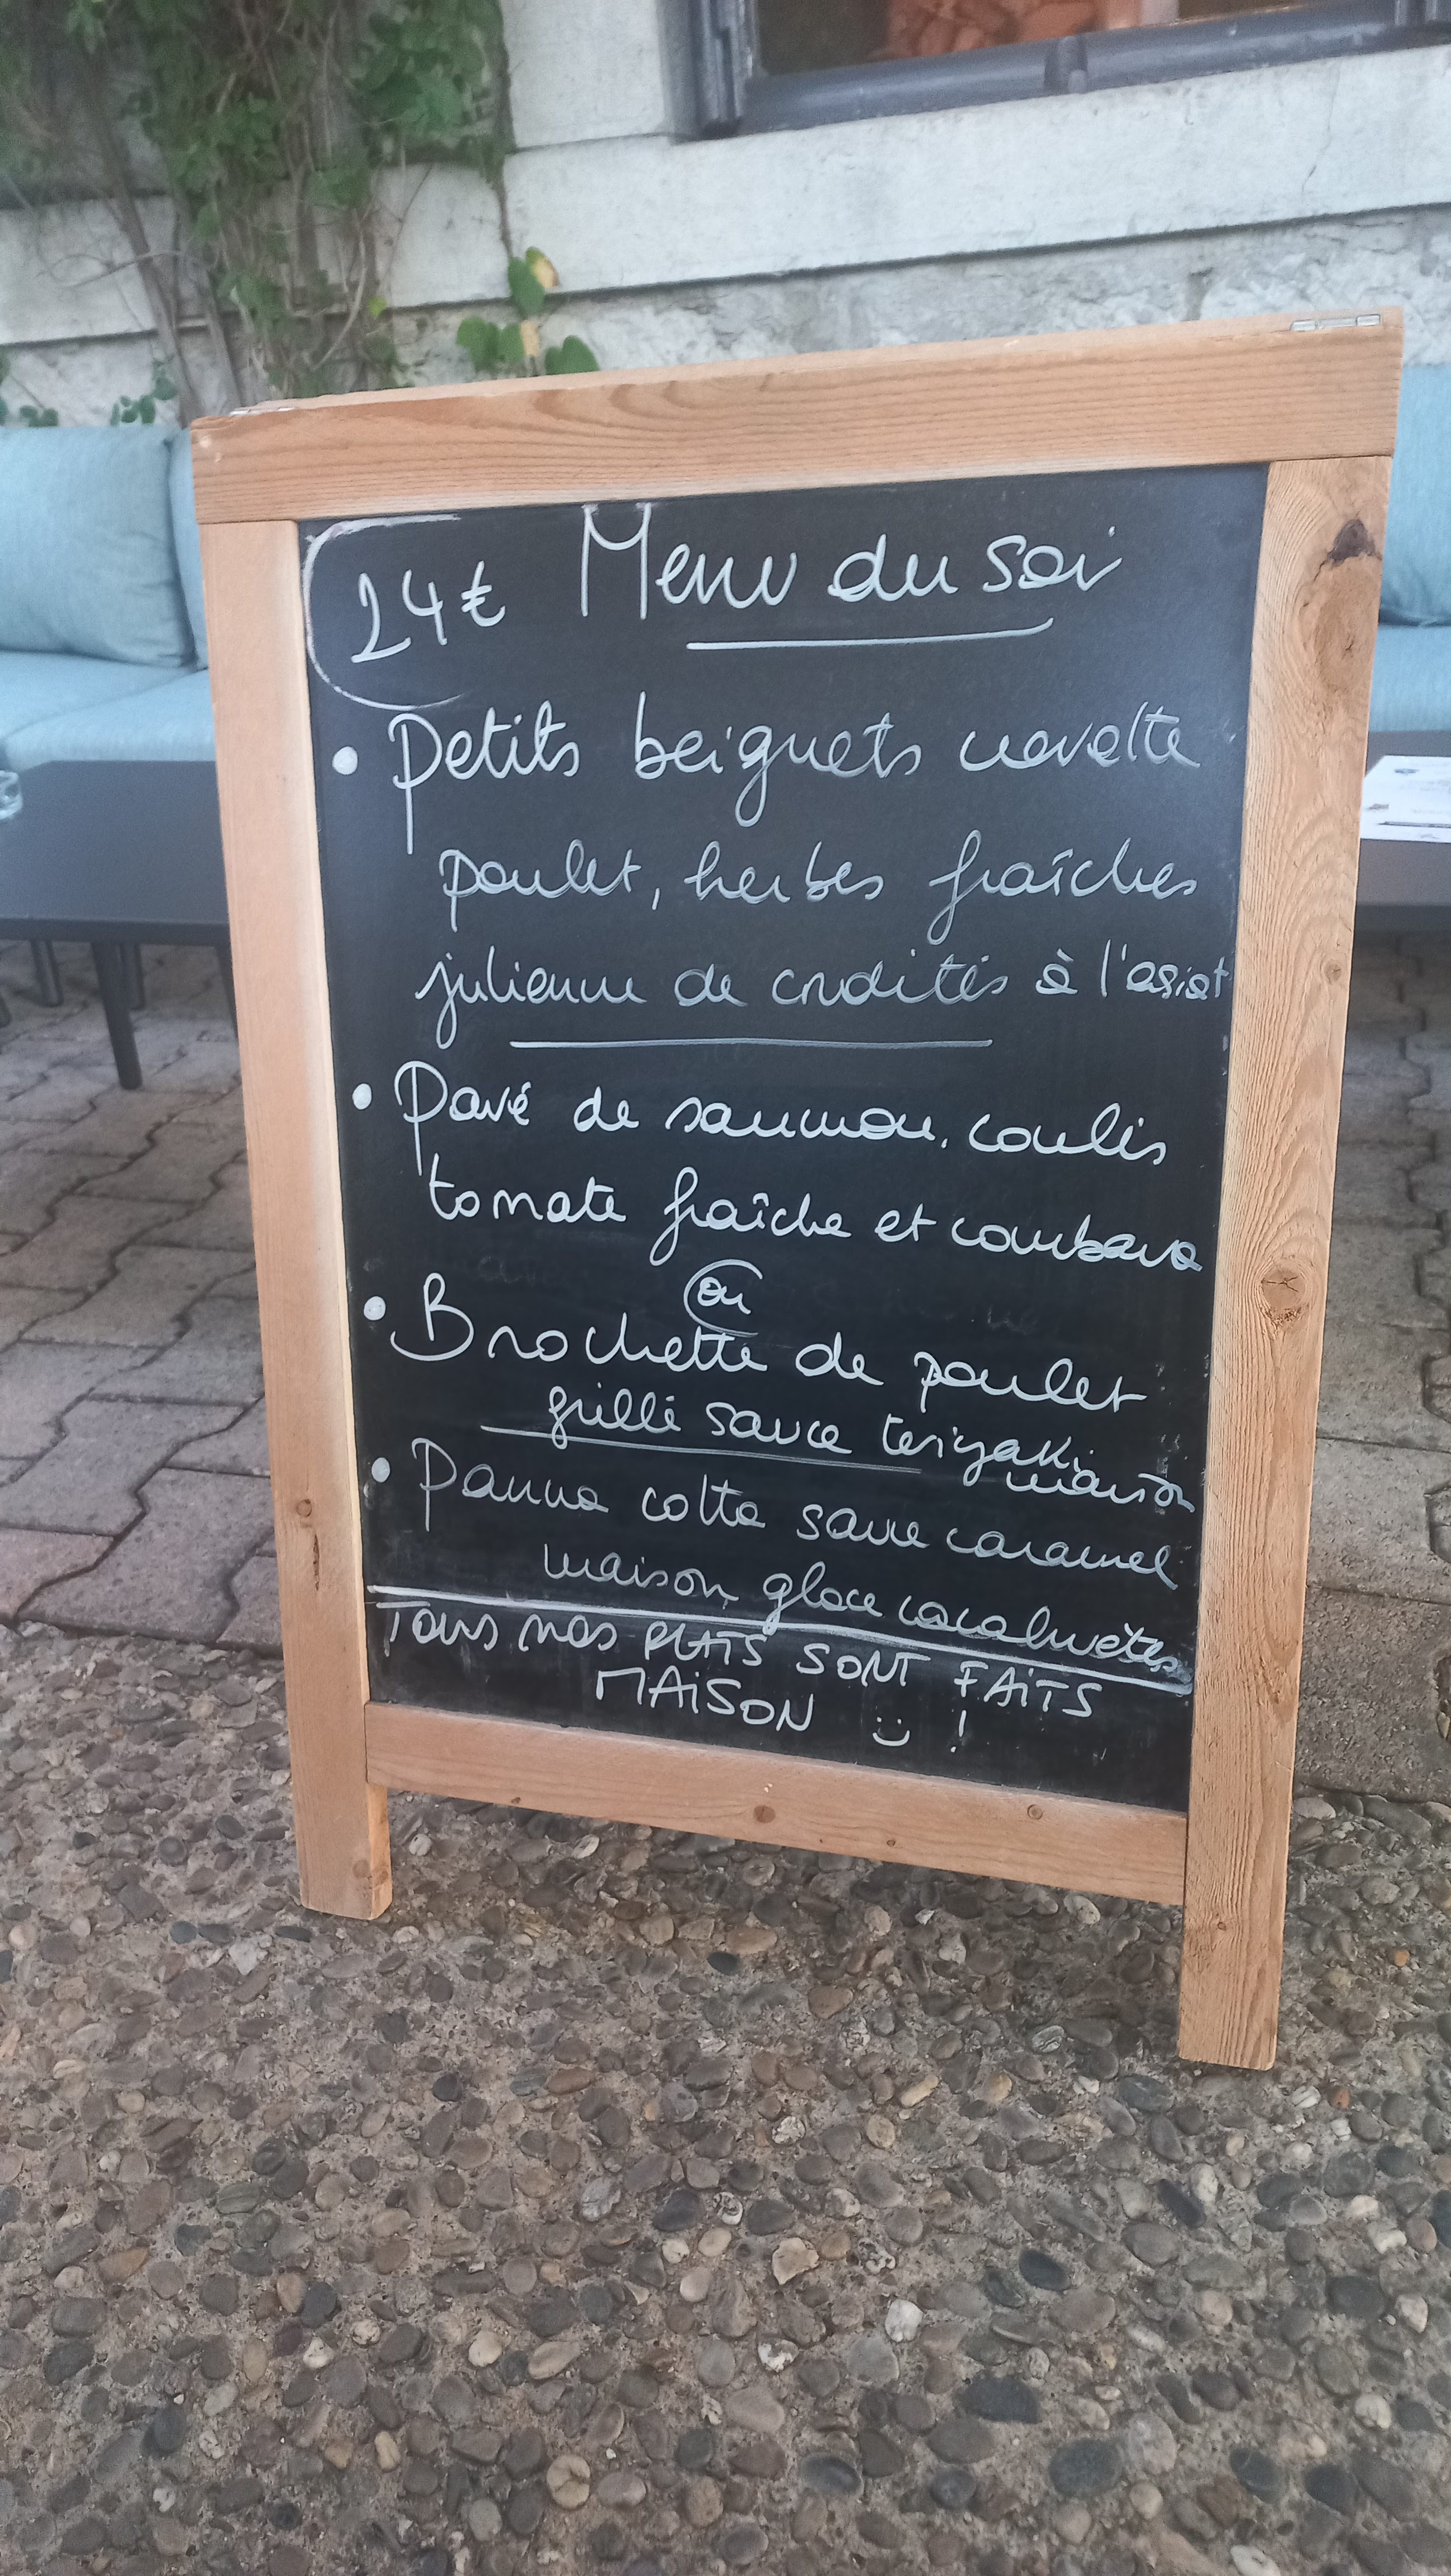 24€ Menu du soir
• Petits beignets crevette
poulet, herbes fraîches
julienne de crudités à l'asiat
• Pavé de saumon, coulis
tomate fraîche et combava
ou
• Brochette de poulet
grillé sauce teriyaki
maison
• Panna cotta sauce caramel
maison, glace cacahuètes
TOUS NOS PLATS SONT FAITS
MAISON !